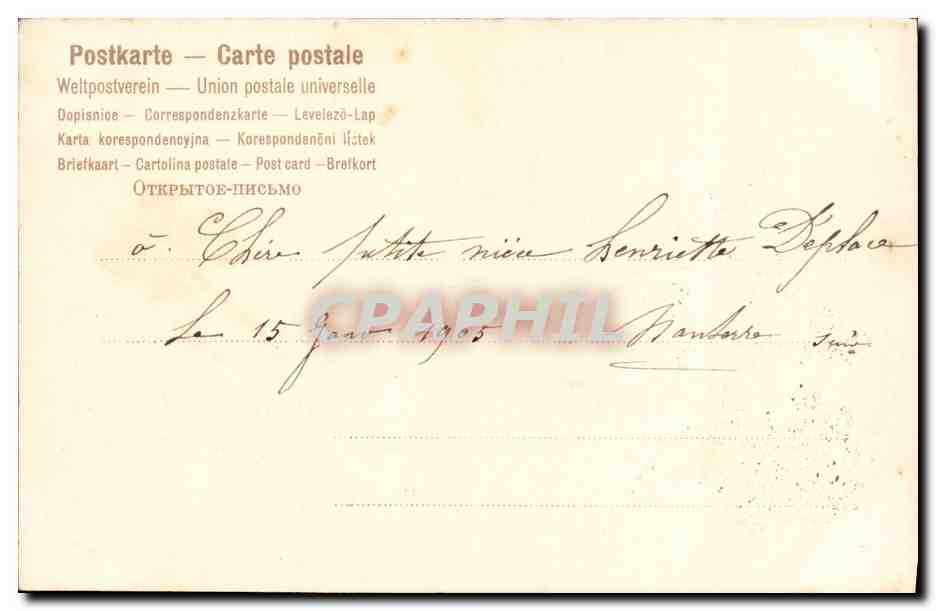 Postkarte — Carte postale
Weltpostverein — Union postale universelle
Dopisnice — Correspondenzkarte — Levelezö-Lap
Karta korespondencyjna — Korespondenčni listek
Briefkaart — Cartolina postale — Post card — Brefkort
Открытое-письмо
à. Chère petite nièce Henriette Deplace
CPAPHIL
Le 15 Janv 1905 Nanterre